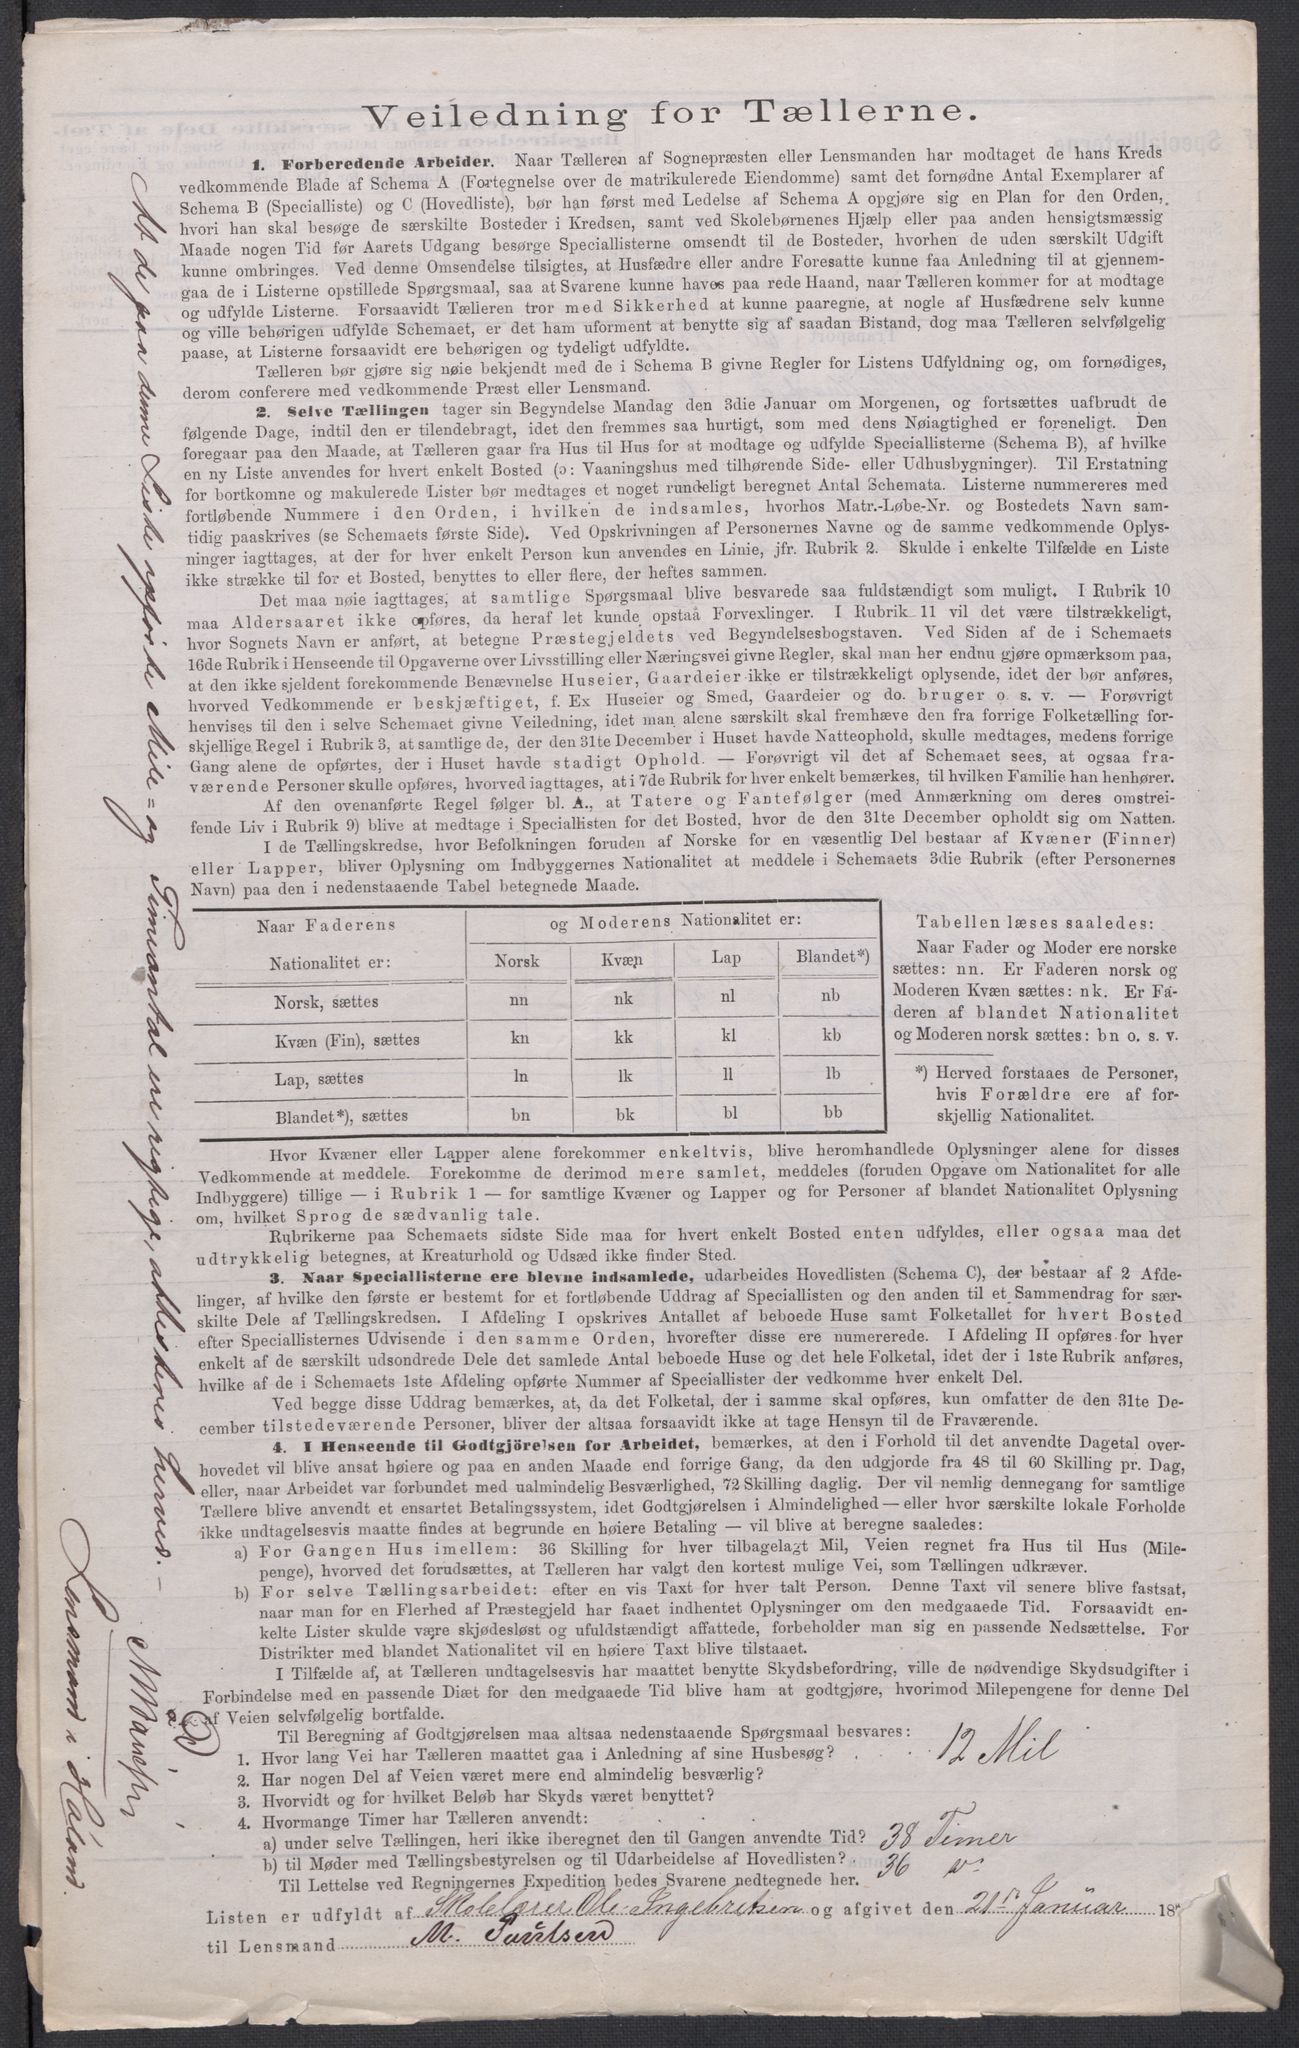 Veiledning for Tællerne.
1. Forberedende Arbeider. Naar Tælleren af Sognepræsten eller Lensmanden har modtaget de hans Kreds
vedkommende Blade af Schema A (Fortegnelse over de matrikulerede Eiendomme) samt det fornødne Antal Exemplarer af
Schema B (Specialliste) og C (Hovedliste), bør han først med Ledelse af Schema A opgjøre sig en Plan for den Orden,
hvori han skal besøge de særskilte Bosteder i Kredsen, samt ved Skolebørnenes Hjælp eller paa anden hensigtsmæssig
Maade nogen Tid før Aarets Udgang besørge Speciallisterne omsendt til de Bosteder, hvorhen de uden særskilt Udgift
kunne ombringes. Ved denne Omsendelse tilsigtes, at Husfædre eller andre Foresatte kunne faa Anledning til at gjennem-
gaa de i Listerne opstillede Spørgsmaal, saa at Svarene kunne haves paa rede Haand, naar Tælleren kommer for at modtage
og udfylde Listerne. Forsaavidt Tælleren tror med Sikkerhed at kunne paaregne, at nogle af Husfædrene selv kunne
og ville behørigen udfylde Schemaet, er det ham uforment at benytte sig af saadan Bistand, dog maa Tælleren selvfølgelig
paase, at Listerne forsaavidt ere behørigen og tydeligt udfyldte.
Tælleren bør gjøre sig nøie bekjendt med de i Schema B givne Regler for Listens Udfyldning og, om fornødiges,
derom conferere med vedkommende Præst eller Lensmand.
2. Selve Tællingen tager sin Begyndelse Mandag den 3die Januar om Morgenen, og fortsættes uafbrudt de
følgende Dage, indtil den er tilendebragt, idet den fremmes saa hurtigt, som med dens Nøiagtighed er foreneligt. Den
foregaar paa den Maade, at Tælleren gaar fra Hus til Hus for at modtage og udfylde Speciallisterne (Schema B), af hvilke
en ny Liste anvendes for hvert enkelt Bosted (ɔ: Vaaningshus med tilhørende Side- eller Udhusbygninger). Til Erstatning
for bortkomne og makulerede Lister bør medtages et noget rundeligt beregnet Antal Schemata. Listerne nummereres med
fortløbende Nummere i den Orden, i hvilken de indsamles, hvorhos Matr.-Løbe-Nr. og Bostedets Navn sam-
tidig paaskrives (se Schemaets første Side). Ved Opskrivningen af Personernes Navne og de samme vedkommende Oplys-
ninger iagttages, at der for hver enkelt Person kun anvendes en Linie, jfr. Rubrik 2. Skulde i enkelte Tilfælde en Liste
ikke strække til for et Bosted, benyttes to eller flere, der heftes sammen.
Det maa nøie iagttages, at samtlige Spørgsmaal blive besvarede saa fuldstændigt som muligt. I Rubrik 10
maa Aldersaaret ikke opføres, da heraf let kunde opstaa Forvexlinger. I Rubrik 11 vil det være tilstrækkeligt,
hvor Sognets Navn er anført, at betegne Præstegjeldets ved Begyndelsesbogstaven. Ved Siden af de i Schemaets
16de Rubrik i Henseende til Opgaverne over Livsstilling eller Næringsvei givne Regler, skal man her endnu gjøre opmærksom paa,
at den ikke sjeldent forekommende Benævnelse Huseier, Gaardeier ikke er tilstrækkeligt oplysende, idet der bør anføres,
hvorved Vedkommende er beskjæftiget, f. Ex Huseier og Smed, Gaardeier og do. bruger o. s. v. — Forøvrigt
henvises til den i selve Schemaet givne Veiledning, idet man alene særskilt skal fremhæve den fra forrige Folketælling for-
skjellige Regel i Rubrik 3, at samtlige de, der den 31te December i Huset havde Natteophold, skulle medtages, medens forrige
Gang alene de opførtes, der i Huset havde stadigt Ophold. — Forøvrigt vil det af Schemaet sees, at ogsaa fra-
værende Personer skulle opføres, hvorved iagttages, at i 7de Rubrik for hver enkelt bemærkes, til hvilken Familie han henhører.
Af den ovenanførte Regel følger bl. A., at Tatere og Fantefølger (med Anmærkning om deres omstrei-
fende Liv i Rubrik 9) blive at medtage i Speciallisten for det Bosted, hvor de den 31te December opholdt sig om Natten.
I de Tællingskredse, hvor Befolkningen foruden af Norske for en væsentlig Del bestaar af Kvæner (Finner)
eller Lapper, bliver Oplysning om Indbyggernes Nationalitet at meddele i Schemaets 3die Rubrik (efter Personernes
Navn) paa den i nedenstaaende Tabel betegnede Maade.
Naar Faderens og Moderens Nationalitet er:
Nationalitet er: Norsk Kvæn Lap Blandet*)
Norsk, sættes nn nk nl nb
Kvæn (Fin), sættes kn kk kl kb
Lap, sættes ln lk ll lb
Blandet*), sættes bn bk bl bb
Tabellen læses saaledes:
Naar Fader og Moder ere norske
sættes: nn. Er Faderen norsk og
Moderen Kvæn sættes: nk. Er Fa-
deren af blandet Nationalitet
og Moderen norsk sættes: bn o. s. v.
*) Herved forstaaes de Personer,
hvis Forældre ere af for-
skjellig Nationalitet.
Hvor Kvæner eller Lapper alene forekommer enkeltvis, blive heromhandlede Oplysninger alene for disses
Vedkommende at meddele. Forekomme de derimod mere samlet, meddeles (foruden Opgave om Nationalitet for alle
Indbyggere) tillige — i Rubrik 1 — for samtlige Kvæner og Lapper og for Personer af blandet Nationalitet Oplysning
om, hvilket Sprog de sædvanlig tale.
Rubrikerne paa Schemaets sidste Side maa for hvert enkelt Bosted enten udfyldes, eller ogsaa maa det
udtrykkelig betegnes, at Kreaturhold og Udsæd ikke finder Sted.
3. Naar Speciallisterne ere blevne indsamlede, udarbeides Hovedlisten (Schema C), der bestaar af 2 Afde-
linger, af hvilke den første er bestemt for et fortløbende Uddrag af Speciallisten og den anden til et Sammendrag for sær-
skilte Dele af Tællingskredsen. I Afdeling I opskrives Antallet af beboede Huse samt Folketallet for hvert Bosted
efter Speciallisternes Udvisende i den samme Orden, hvorefter disse ere numererede. I Afdeling II opføres for hver
enkelt af de særskilt udsondrede Dele det samlede Antal beboede Huse og det hele Folketal, idet der i 1ste Rubrik anføres,
hvilke af de i Schemaets 1ste Afdeling opførte Nummer af Speciallister der vedkomme hver enkelt Del.
Ved begge disse Uddrag bemærkes, at, da det Folketal, der i samme skal opføres, kun omfatter de den 31te De-
cember tilstedeværende Personer, bliver der altsaa forsaavidt ikke at tage Hensyn til de Fraværende.
4. I Henseende til Godtgjörelsen for Arbeidet, bemærkes, at den i Forhold til det anvendte Dagetal over-
hovedet vil blive ansat høiere og paa en anden Maade end forrige Gang, da den udgjorde fra 48 til 60 Skilling pr. Dag,
eller, naar Arbeidet var forbundet med ualmindelig Besværlighed, 72 Skilling daglig. Der vil nemlig dennegang for samtlige
Tællere blive anvendt et ensartet Betalingssystem, idet Godtgjørelsen i Almindelighed — eller hvor særskilte lokale Forholde
ikke undtagelsesvis maatte findes at begrunde en høiere Betaling — vil blive at beregne saaledes:
a) For Gangen Hus imellem: 36 Skilling for hver tilbagelagt Mil, Veien regnet fra Hus til Hus (Mile-
penge), hvorved det forudsættes, at Tælleren har valgt den kortest mulige Vei, som Tællingen udkræver.
b) For selve Tællingsarbeidet: efter en vis Taxt for hver talt Person. Denne Taxt vil senere blive fastsat,
naar man for en Flerhed af Præstegjeld har faaet indhentet Oplysninger om den medgaaede Tid. Forsaavidt en-
kelte Lister skulde være skjødesløst og ufuldstændigt affattede, forbeholder man sig en passende Nedsættelse. For
Distrikter med blandet Nationalitet vil en høiere Taxt blive tilstaaet.
I Tilfælde af, at Tælleren undtagelsesvis har maattet benytte Skydsbefordring, ville de nødvendige Skydsudgifter i
Forbindelse med en passende Diæt for den medgaaede Tid blive ham at godtgjøre, hvorimod Milepengene for denne Del
af Veien selvfølgelig bortfalde.
Til Beregning af Godtgjørelsen maa altsaa nedenstaaende Spørgsmaal besvares:
1. Hvor lang Vei har Tælleren maattet gaa i Anledning af sine Husbesøg? 12 Mil
2. Har nogen Del af Veien været mere end almindelig besværlig?
3. Hvorvidt og for hvilket Beløb har Skyds været benyttet?
4. Hvormange Timer har Tælleren anvendt:
a) under selve Tællingen, heri ikke iberegnet den til Gangen anvendte Tid? 38 Timer
b) til Møder med Tællingsbestyrelsen og til Udarbeidelse af Hovedlisten? 36
Til Lettelse ved Regningernes Expedition bedes Svarene nedtegnede her.
Listen er udfyldt af Skolelærer Ole Ingebretsen og afgivet den 21de Januar 18
til Lensmand M. Paulsen
At de paa denne Liste paaførte Mile= og Timeantal ere rigtige, attesteres herved. –
Lensmand i Háland.